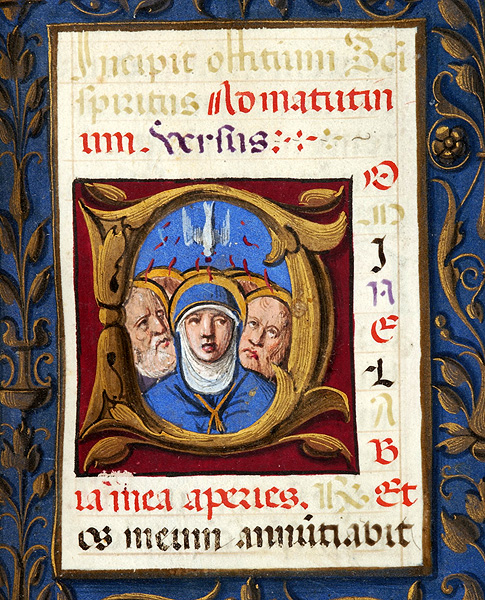 Incipit offitium Sci
spiritus Ad matutin
um. Versus
DO
M
I
N
E
L
A
B
ia mea aperies. Et
os meum annūtiabit